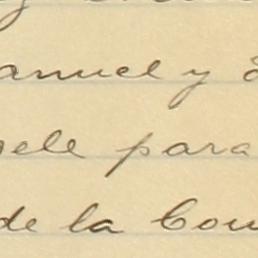 anuel y
sele para
de la Con